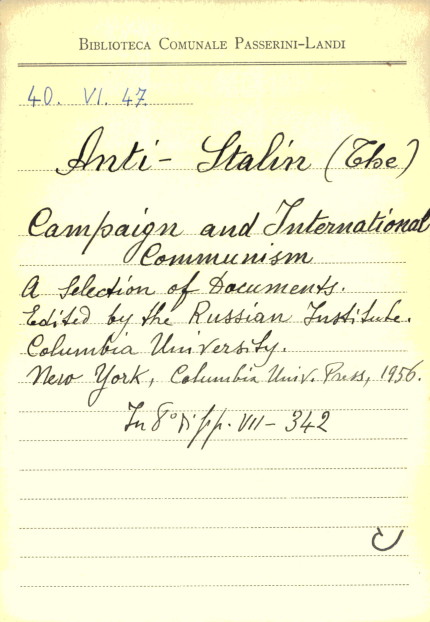 BIBLIOTECA COMUNALE PASSERINI-LANDI
40. VI. 47
Anti- Stalin (The)
Campaign and International
Communism
A Selection of Documents.
Edited by the Russian Institute.
Columbia University.
New York, Columbia Univ. Press, 1956.
In 8° di pp. VII- 342